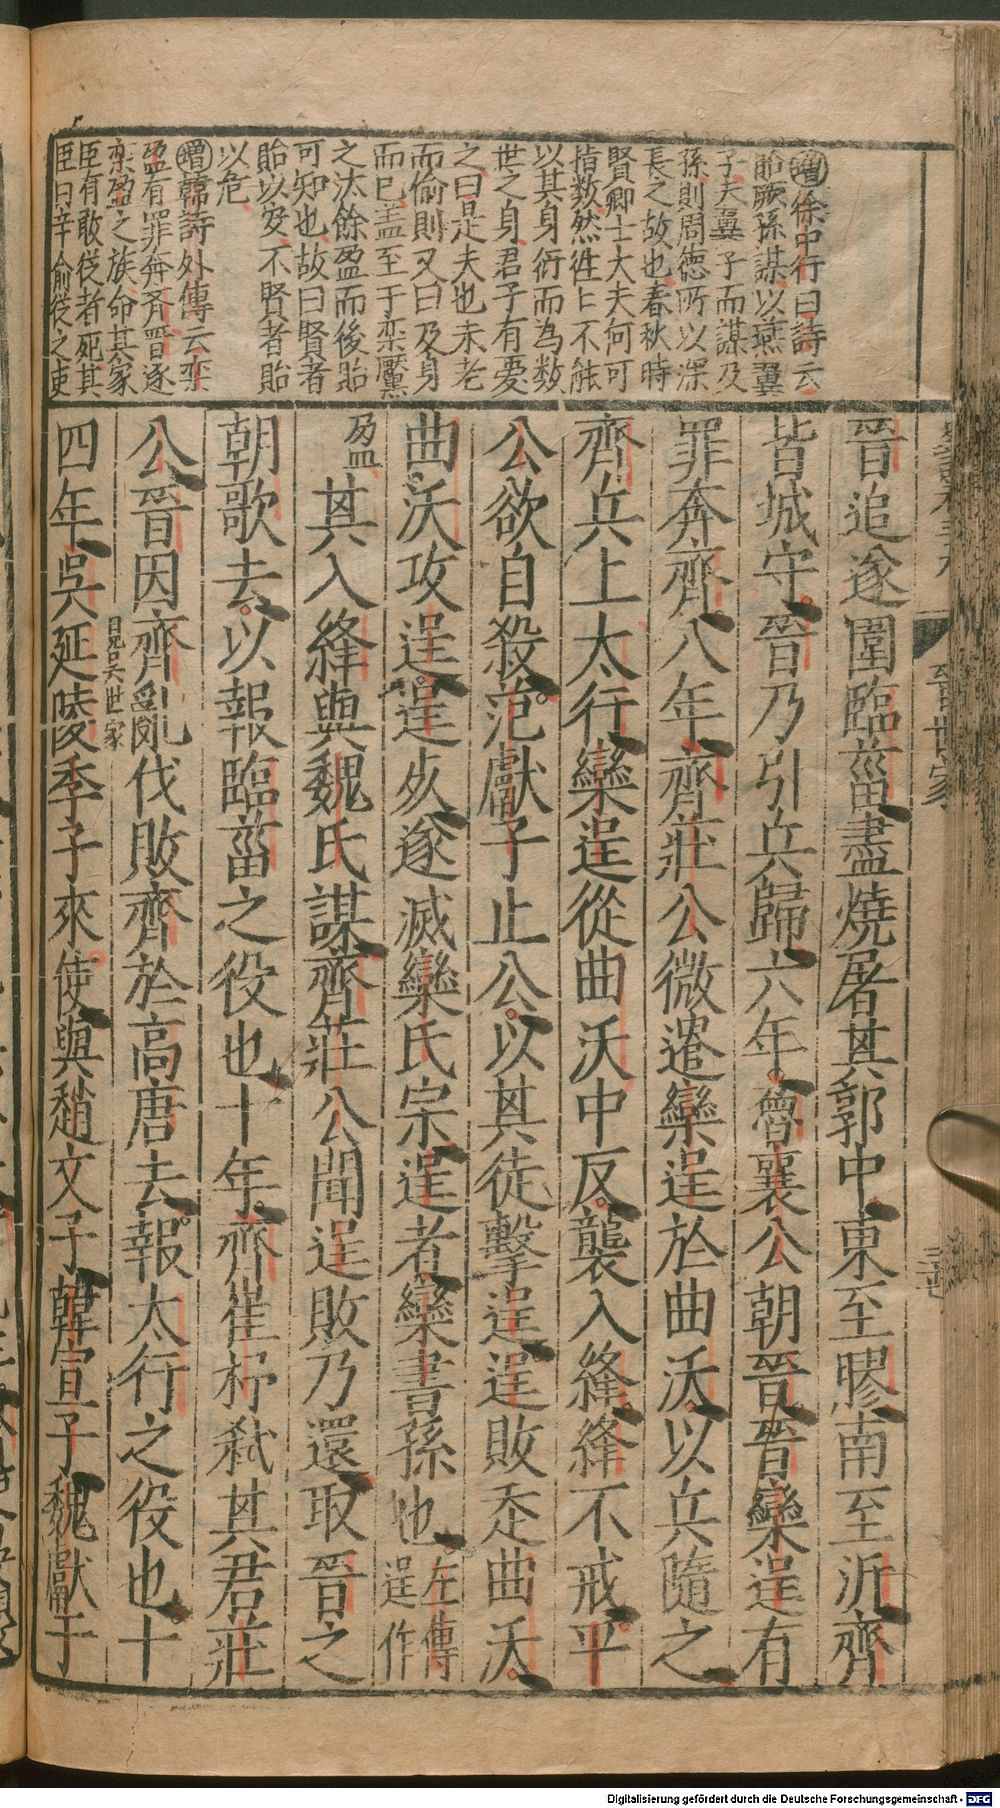 增徐中行曰詩云
貽厥孫謀以燕翼
子夫翼子而謀及
孫則周德所以深
長之故也春秋時
賢卿士大夫何可
指數然徃〻不能
以其身衍而為數
世之身君子有憂
之曰是夫也未老
而偷則又曰及身
而已盖至于栾黶
之汰餘盈而後貽
可知也故曰賢者
貽以安不賢者貽
以危
增韓詩外傳云栾
盈有罪奔齊晋逐
栾盈之族命其家
臣有敢從者死其
臣曰辛俞從之吏
晉世家
晉追遂圍臨菑盡燒屠其郭中東至膠南至沂齊
皆城守晉乃引兵歸六年魯襄公朝晉晉欒逞有
罪奔齊八年齊莊公微遣欒逞於曲沃以兵隨之
齊兵上太行欒逞從曲沃中反襲入絳絳不戒平
公欲自殺范獻子止公以其徒擊逞逞敗走曲沃
曲沃攻逞逞死遂滅欒氏宗逞者欒書孫也左傳逞作
盈其入絳與魏氏謀齊莊公聞逞敗乃還取晉之
朝歌去以報臨菑之役也十年齊崔杼弒其君莊
公晉因齊亂伐敗齊於高唐去報太行之役也十
見吳世家
四年吳延陵季子來使與趙文子韓宣子魏獻子
Digitalisierung gefördert durch die Deutsche Forschungsgemeinschaft - DFG